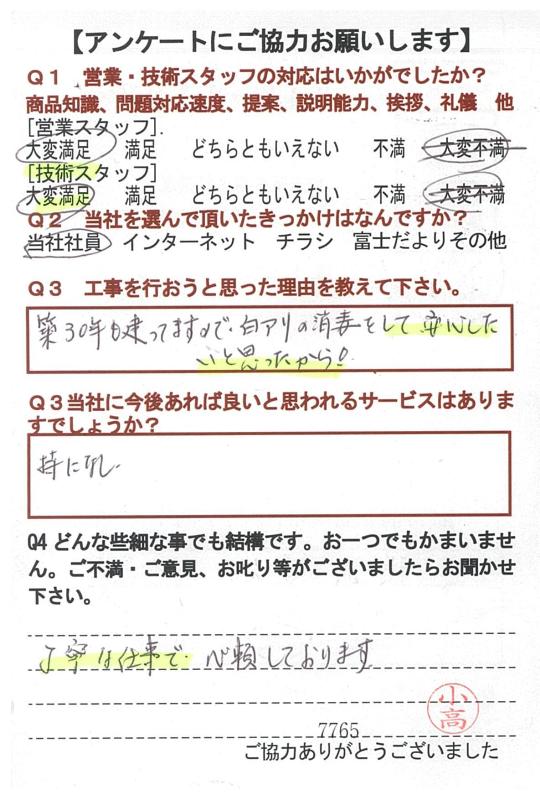 【アンケートにご協力お願いします】
Q1 営業・技術スタッフの対応はいかがでしたか?
商品知識、問題対応速度、提案、説明能力、挨拶、礼儀 他
[営業スタッフ].
大変満足 満足 どちらともいえない 不満 大変不満
[技術スタッフ]
大変満足 満足 どちらともいえない 不満 大変不満
Q2 当社を選んで頂いたきっかけはなんですか?
当社社員 インターネット チラシ 富士だよりその他
Q3 工事を行おうと思った理由を教えて下さい。
築30年も建ってますので、白アリの消毒をして安心した
いと思ったから!
Q3当社に今後あれば良いと思われるサービスはありま
すでしょうか?
特になし
Q4 どんな些細な事でも結構です。お一つでもかまいませ
ん。ご不満・ご意見、お叱り等がございましたらお聞かせ
下さい。
丁寧な仕事で 心頼しております
小高
7765
ご協力ありがとうございました